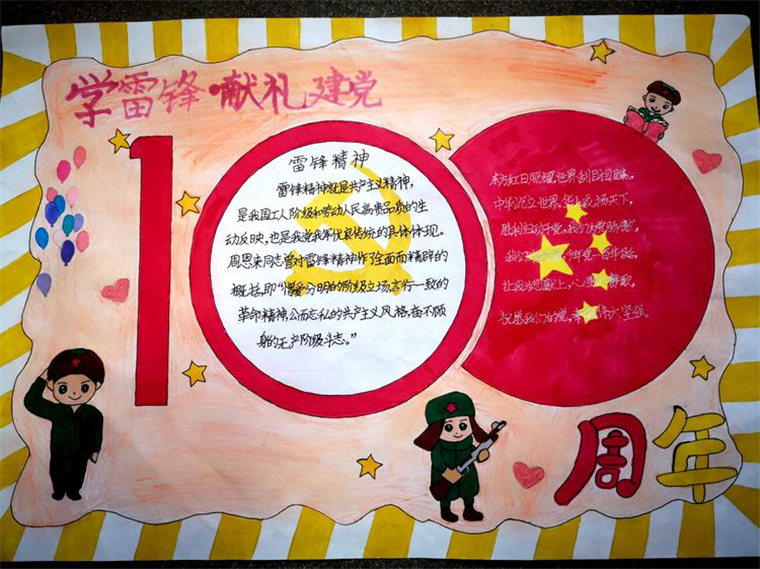 学雷锋·献礼建党
100
雷锋精神
雷锋精神就是共产主义精神,
是我国工人阶级和劳动人民高贵品质的生
动反映,也是我党我军优良传统的具体体现。
周恩来同志曾对雷锋精神作了全面而精辟的
概括,即“憎爱分明的阶级立场,言行一致的
革命精神,公而忘私的共产主义风格,奋不顾
身的无产阶级斗志。”
东方红日照耀,世界刮目相看。
中华屹立世界,华人
天下,
胜利
我们
我们
让我
上,心
祝愿我们的党,
伟大坚强。
周年